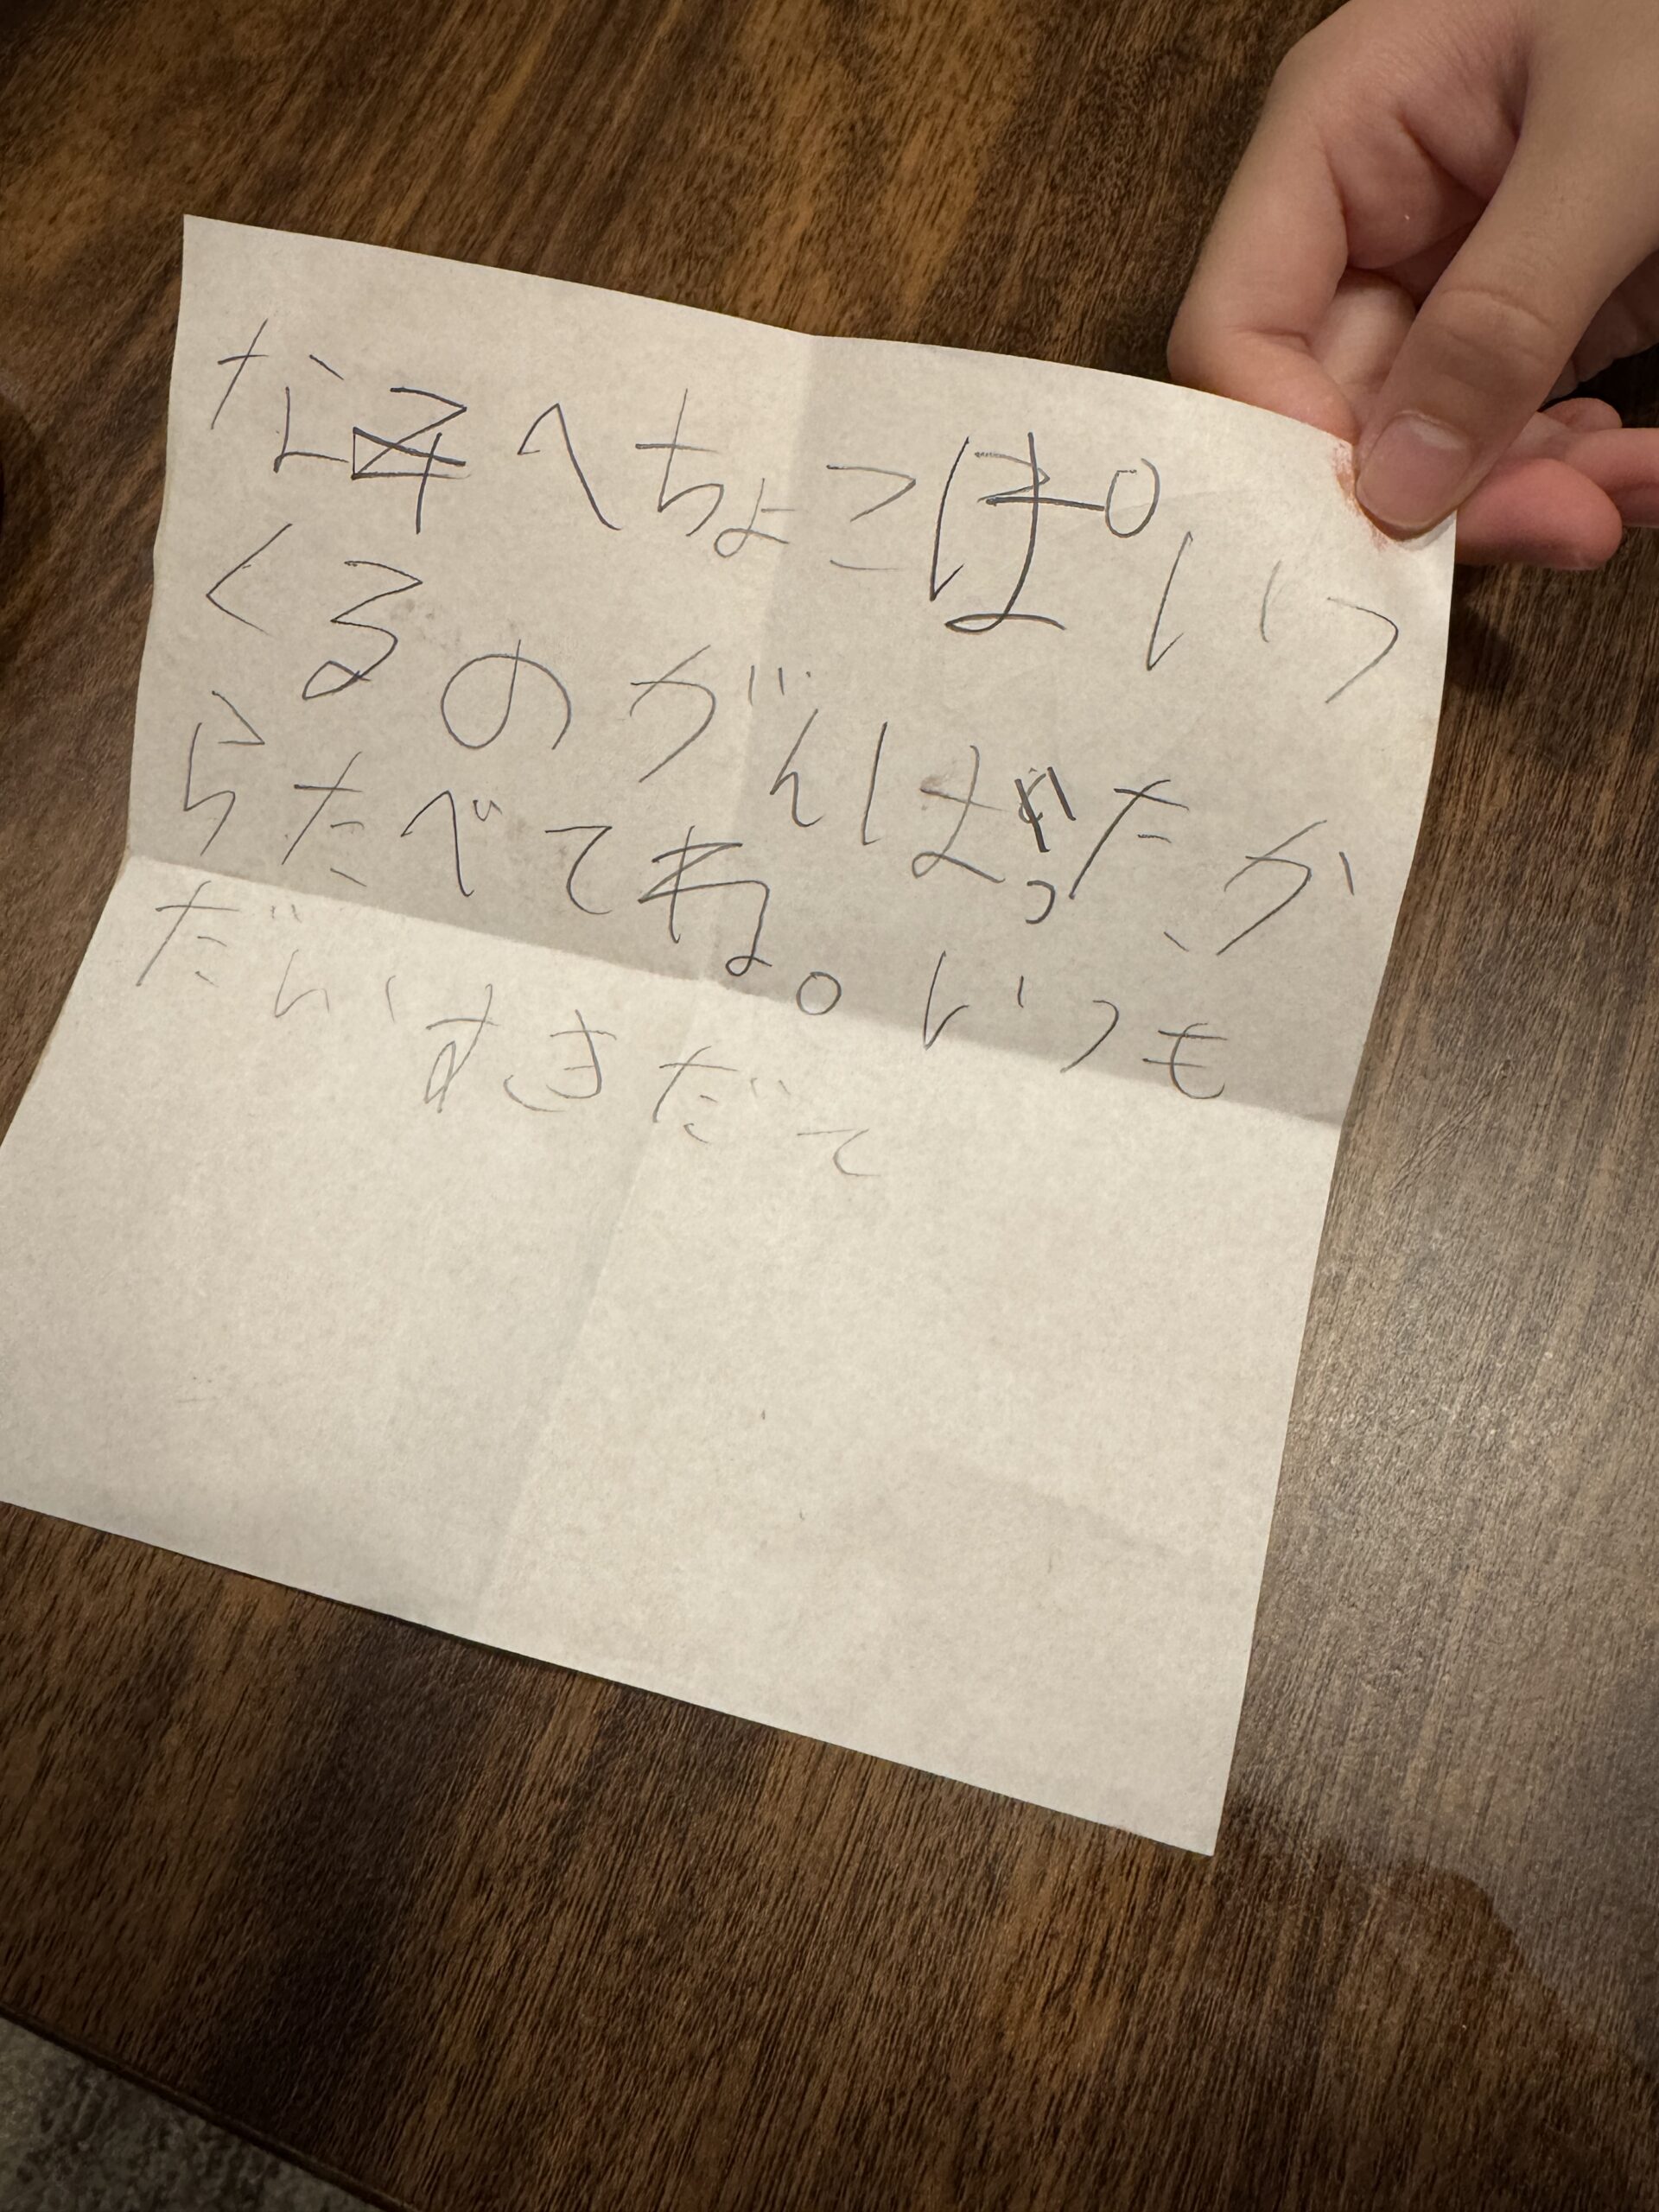 なみへちょこぽいっ
くるのがんばったか
らたべてね。いつも
だいすきだて